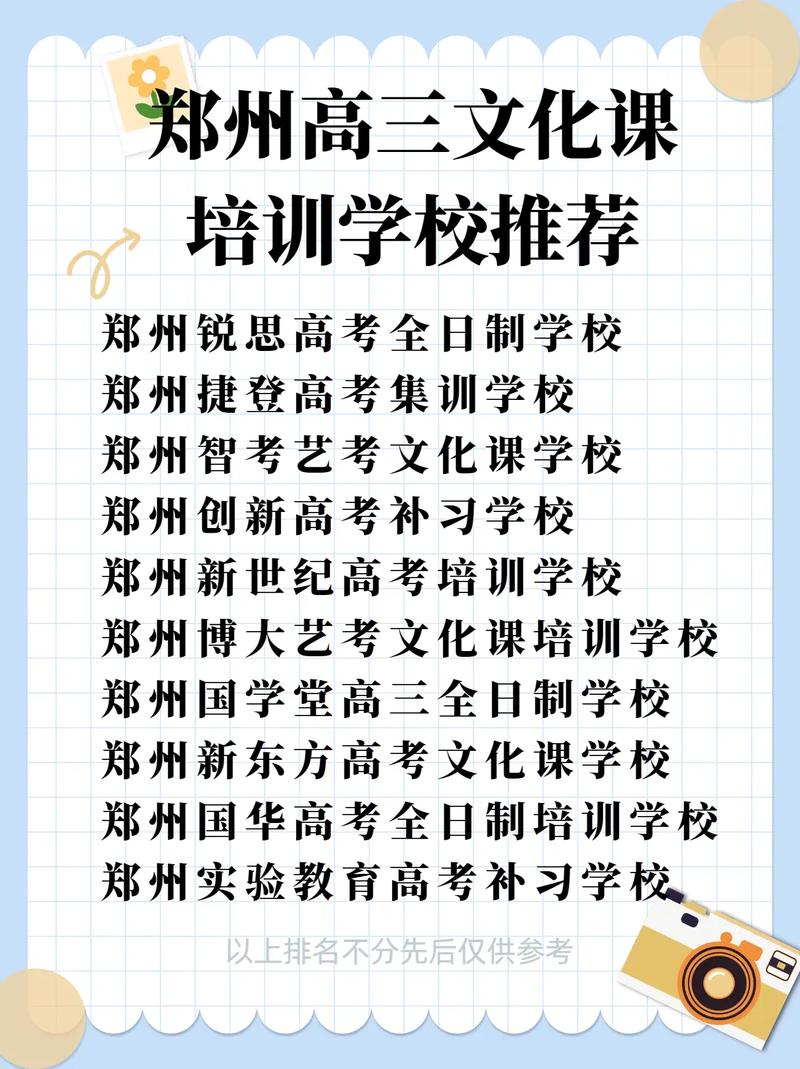 郑州高三文化课
培训学校推荐
郑州锐思高考全日制学校
郑州捷登高考集训学校
郑州智考艺考文化课学校
郑州创新高考补习学校
郑州新世纪高考培训学校
郑州博大艺考文化课培训学校
郑州国学堂高三全日制学校
郑州新东方高考文化课学校
郑州国华高考全日制培训学校
郑州实验教育高考补习学校
以上排名不分先后仅供参考